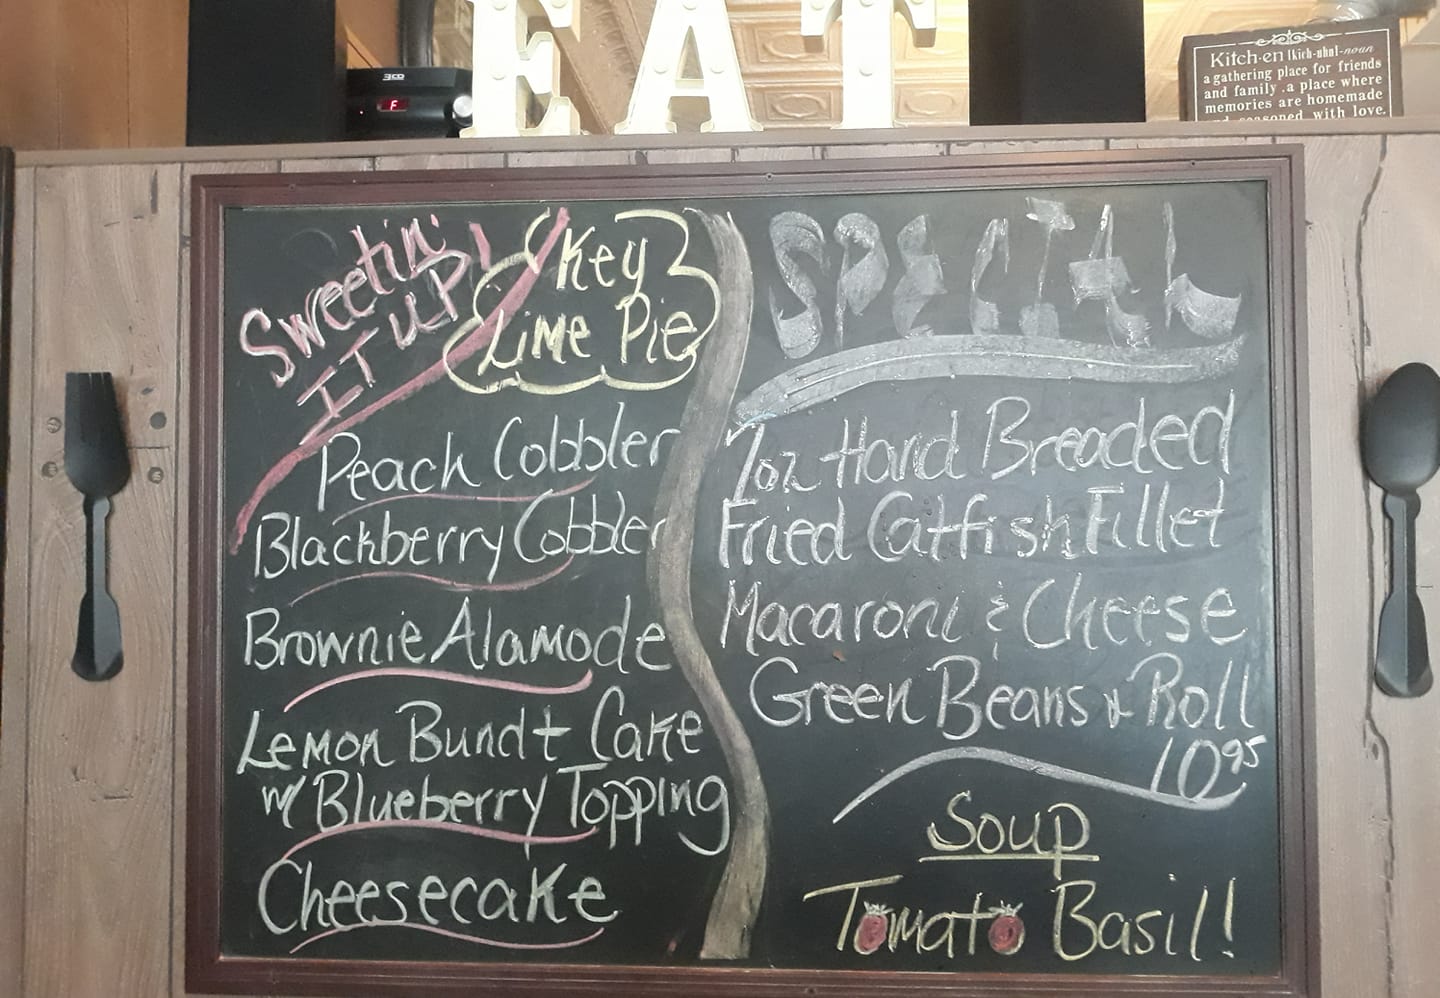 EAT
3CD
F
Kitch·en |kich-uhnl-noun
a gathering place for friends
and family .a place where
memories are homemade
and seasoned with love.
Sweetin'
IT UP!
Key
Lime Pie
Peach Cobbler
Blackberry Cobbler
Brownie Alamode
Lemon Bundt Cake
w/ Blueberry Topping
Cheesecake
SPECIAL
7oz Hand Breaded
Fried Catfish Fillet
Macaroni & Cheese
Green Beans & Roll
10.95
Soup
Tomato Basil!